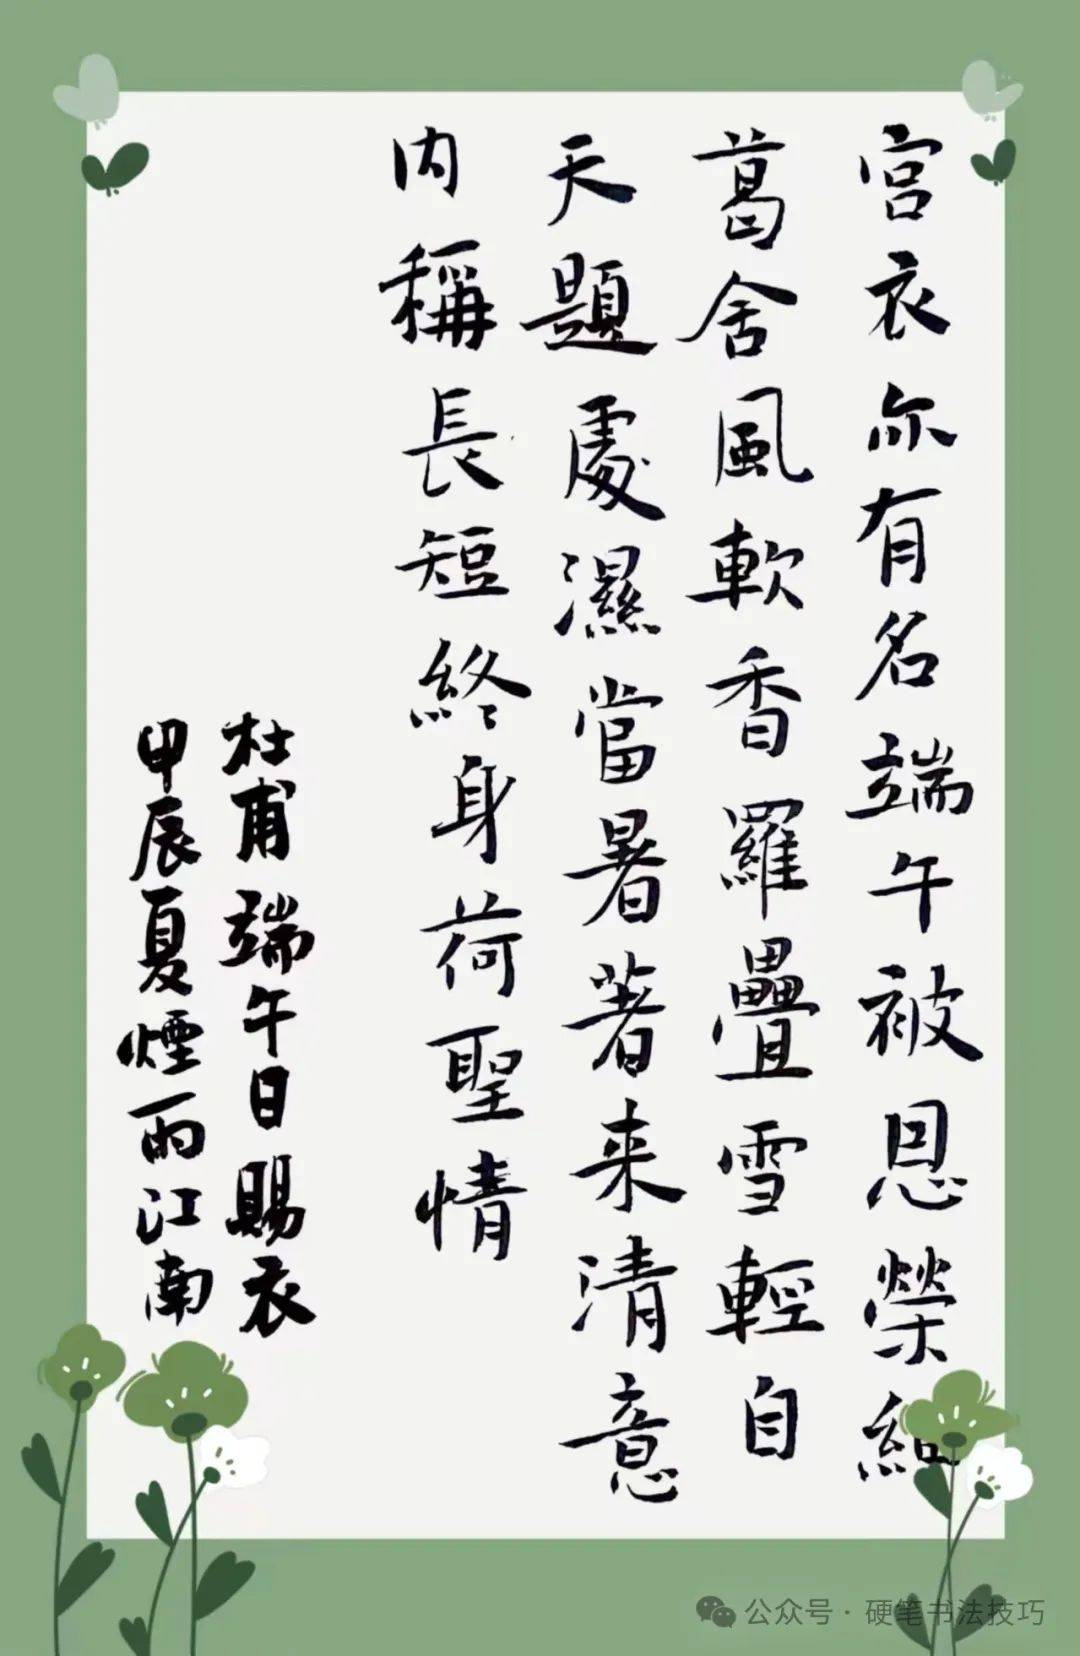 宮衣亦有名端午被恩榮細
葛含風軟香羅疊雪輕自
天題處濕當暑著来清意
内稱長短終身荷聖情
杜甫端午日賜衣
甲辰夏煙雨江南
公众号·硬笔书法技巧